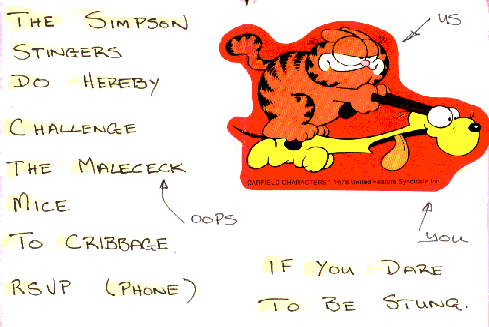 THE SIMPSON
STINGERS
DO HEREBY
CHALLENGE
THE MALECECK
MICE
TO CRIBBAGE
RSVP (PHONE)
OOPS
US
GARFIELD CHARACTERS: © 1978 United Feature Syndicate Inc.
YOU
IF YOU DARE
TO BE STUNG.